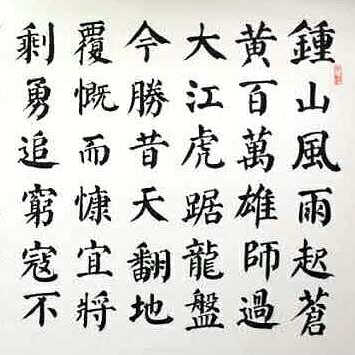 鍾山風雨起蒼
黃百萬雄師過
大江虎踞龍盤
今勝昔天翻地
覆慨而慷宜將
剩勇追窮寇不